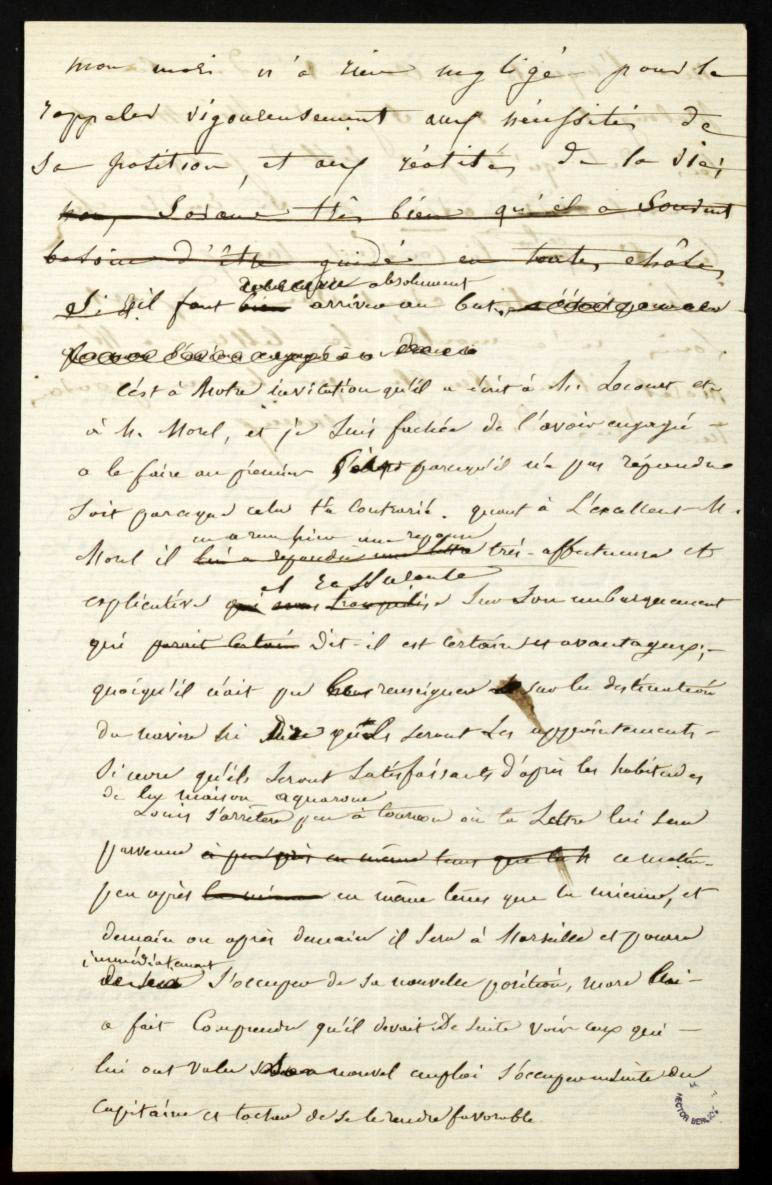 mon mari n'a rien négligé pour le
rappeler vigoureusement aux nécessités de
sa position, et aux réalités de la vie;
très bien qu'il a souvent
besoin d'être guidé en toutes choses,
absolument
Si qu'il faut bien arriver au but,
C'est à Notre invitation qu'il a écrit à M. Lecourt et
à M. Morel, et je suis fachée de l'avoir engagé
a le faire au premier parcequ'il n'a pas répondu
soit parceque cela t'a contrarié. quant à L'excellent M.
en a reçu hier une reponse
Morel il lui a repondu une lettre très-affectueuse et
et
explicative qui sur son embarquement
qui parait certain dit-il est certain et avantageux;
quoiqu'il n'ait pu renseigner sur la destination
du navire ni dire quels seront ses appointements
Si ce n'est qu'ils seront satisfaisants d'après les habitudes
de la maison
Louis s'arrêtera peu à tournon où ta Lettre lui sera
parvenue à peu près en même tems que la ce matin
peu après en même tems que la mienne, et
demain ou après demain il sera à Marseille et pourra
immédiatement
s'occuper de sa nouvelle position, marc lui
a fait Comprendre qu'il devait De suite voir ceux qui
lui ont valu son nouvel emploi s'occuper ensuite du
Capitaine et tacher de se le rendre favorable.
HECTOR BERLIOZ